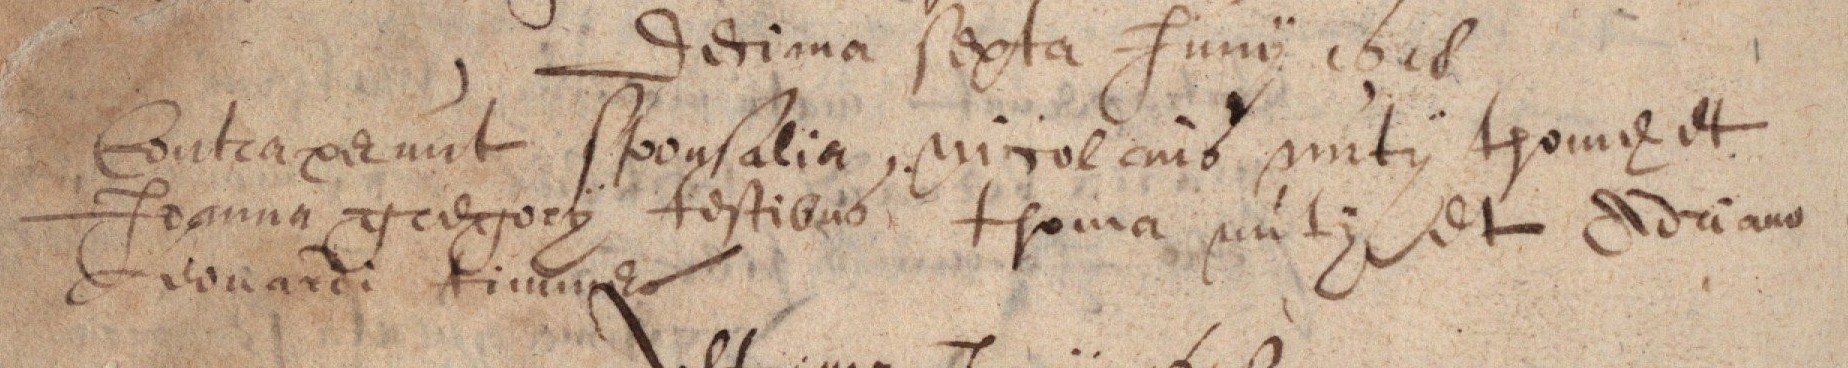 Decima sexta Junij 1618
Contraxerunt sponsalia, Nicolaus nutij thome et
Joanna gregorij testibus thoma nutij et Adriano
Leonardi timmer
Junij